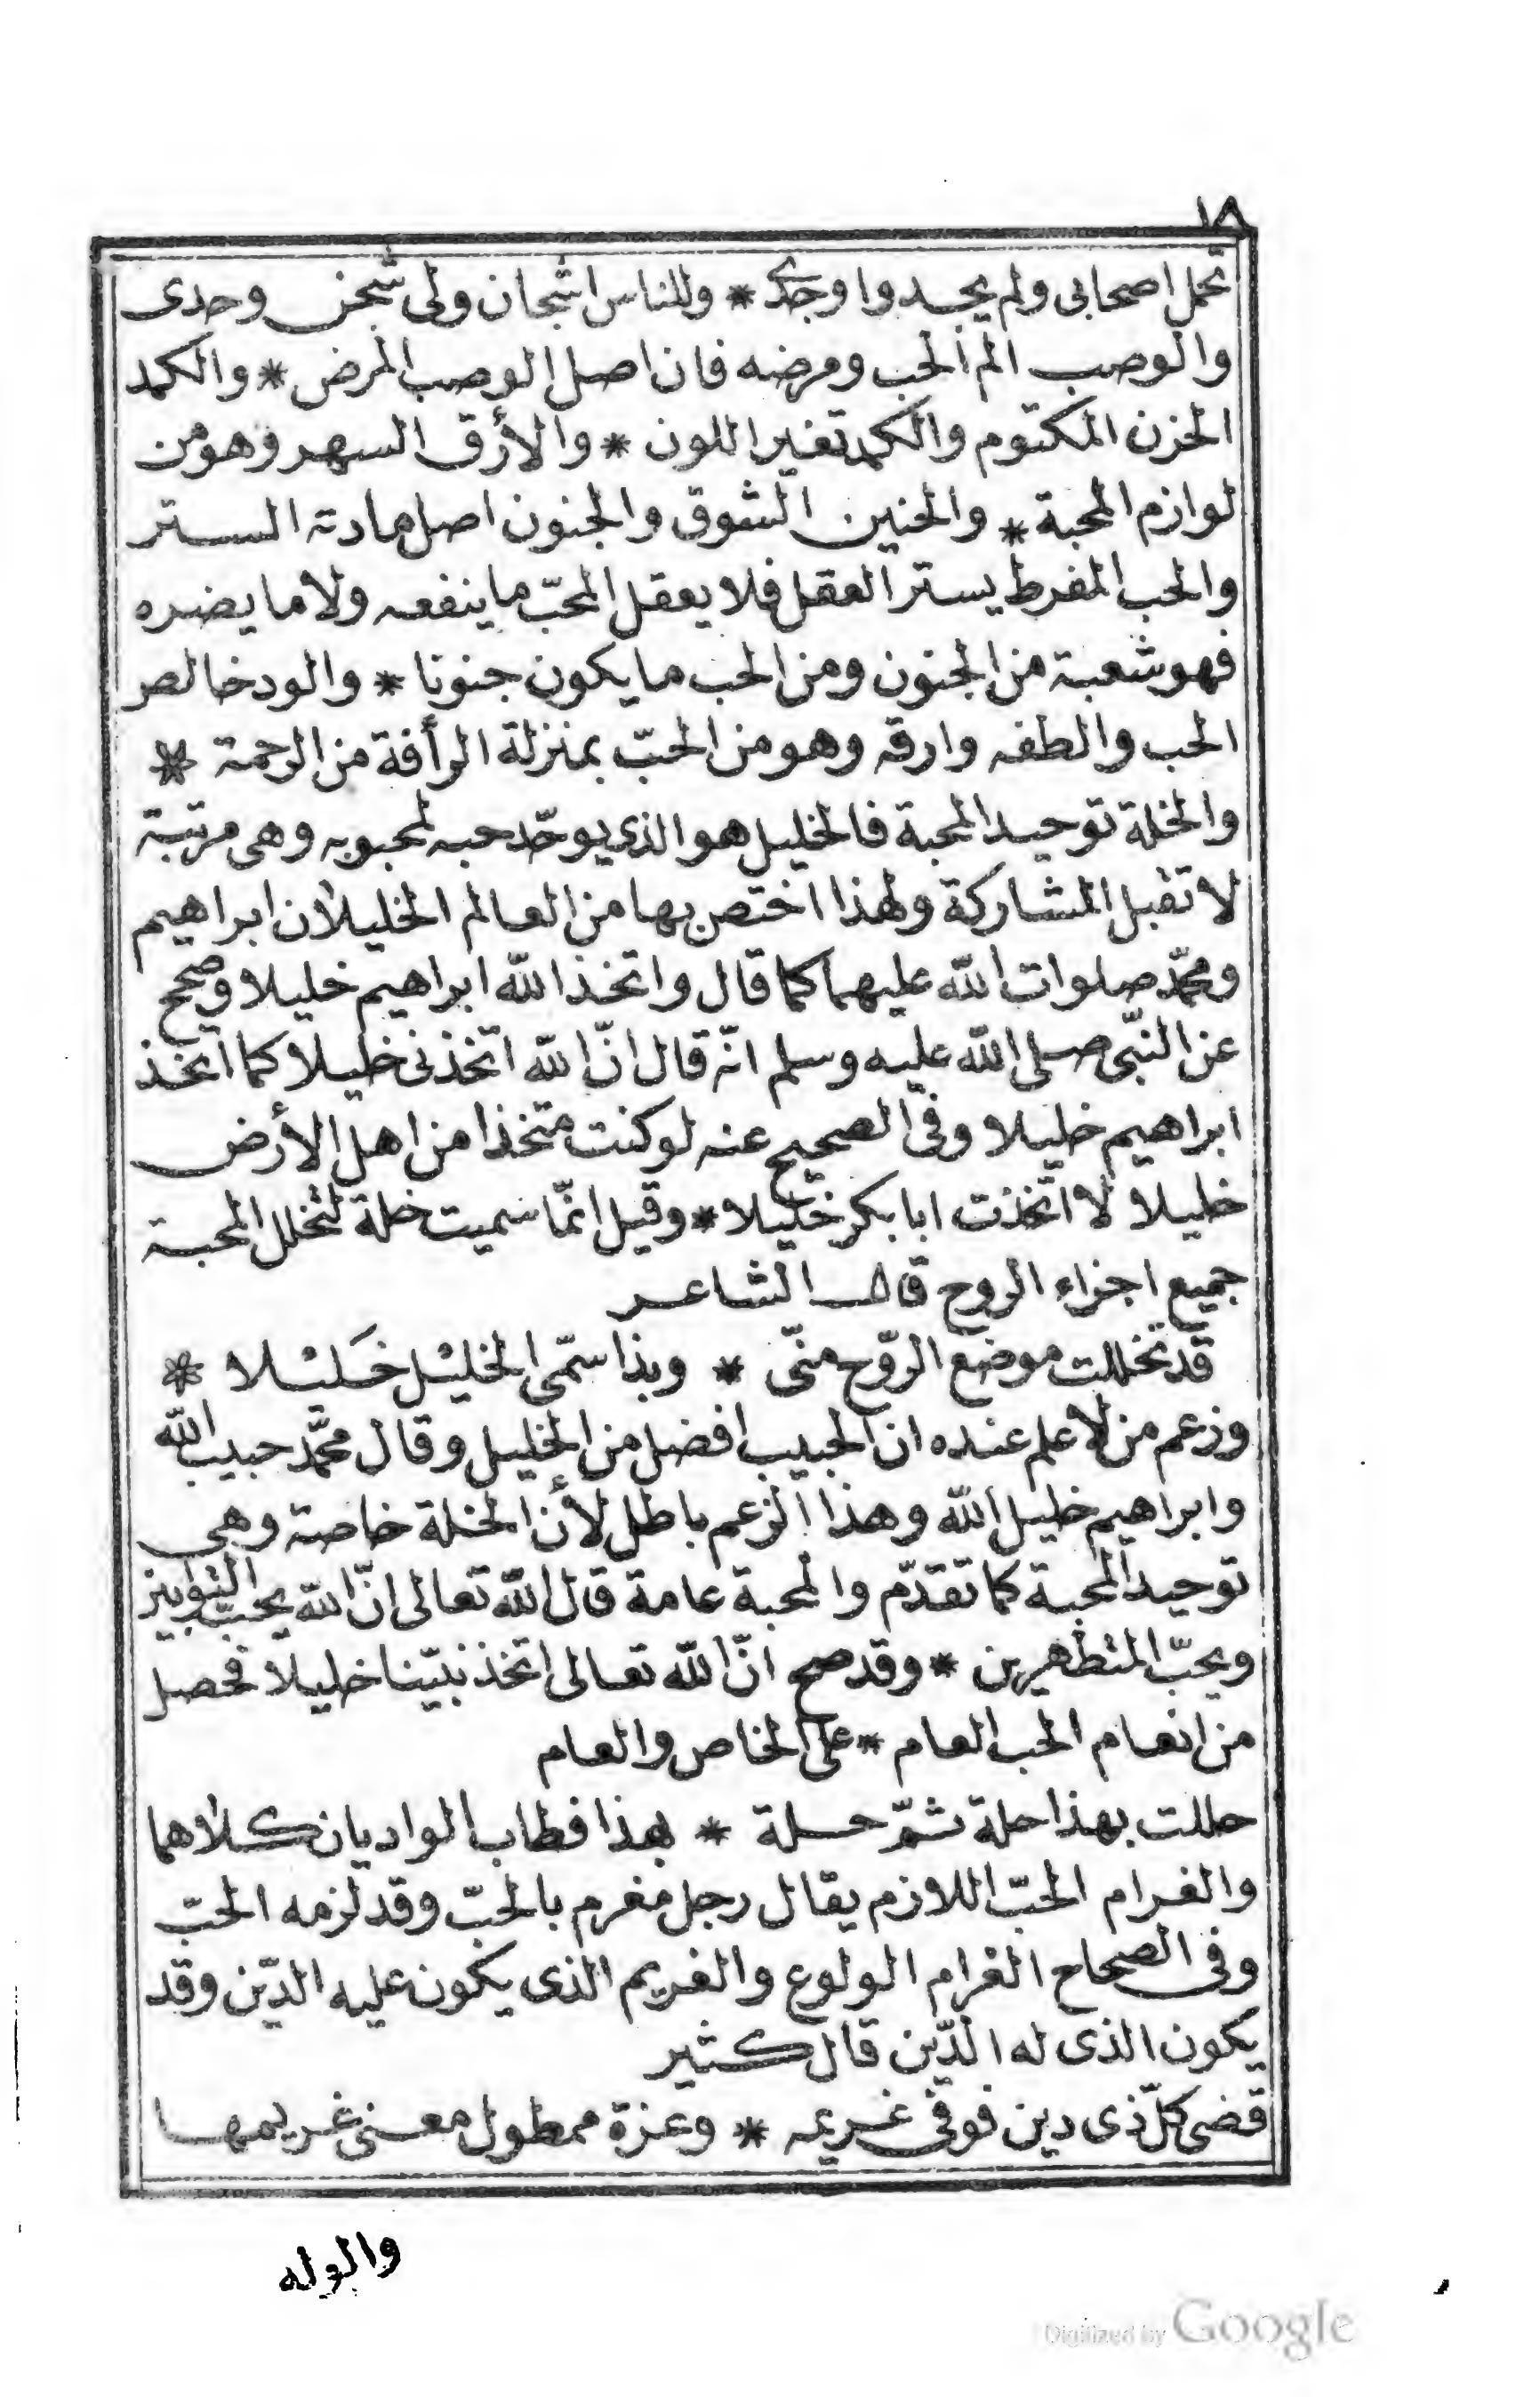 ١٨
تحمل اصحابى ولم يجدوا وجدى * وللناس اشجان ولى شجن وحدى
والوصب الم الحب ومرضه فان اصل الوصب المرض * والكمد
الحزن المكتوم والكمد تغير اللون * والأرق السهر وهو من
لوازم المحبة * والحنين الشوق والجنون اصل مادته الستر
والحب المفرط يستر العقل فلا يعقل المحبّ ما ينفعه ولا ما يضره
فهو شعبة من الجنون ومن الحب ما يكون جنونا * والود خالص
الحب والطفه وارقه وهو من الحبّ بمنزلة الرأفة من الرحمة *
والخلة توحيد المحبة فالخليل هو الذى يوحّد حبه لمحبوبه وهى مرتبة
لا تقبل المشاركة ولهذا اختص بها من العالم الخليلان ابراهيم
ومحمّد صلوات الله عليهما كما قال واتخذ الله ابراهيم خليلا وصحح
عن النبّى صلى الله عليه وسلم انّه قال انّ الله اتّخذنى خليلا كما اتّخذ
ابراهيم خليلا وفى الصحيح عنه لو كنت متّخذا من اهل الأرض
خليلا لا اتّخذت ابا بكر خليلا * وقيل انّما سميت خلة لتخلل المحبة
جميع اجزاء الروح قال الشاعر
قد تخللت موضع الرّوح منّى * وبذا سمّى الخليل خَليلا *
وزعم من لا علم عنده ان الحبيب افضل من الخليل وقال محمّد حبيب الله
وابراهيم خليل الله وهذا الزعم باطل لأن الخلة خاصة وهى
توحيد المحبة كما تقدّم والمحبة عامة قال الله تعالى انّ الله يحبّ التوّابين
ويحبّ المتطهرين * وقد صح انّ الله تعالى اتخذ نبيّنا خليلا فحصل
من انعام الحب العام * على الخاص والعام
حللت بهذا حلة ثمّ حلة * بهذا فطاب الواديان كلاهما
والغرام الحبّ اللازم يقال رجل مغرم بالحبّ وقد لزمه الحبّ
وفى الصحاح الغرام الولوع والغريم الذى يكون عليه الدّين وقد
يكون الذى له الدّين قال كثير
قضى كلّ ذى دين فوفى غريمه * وعزة ممطول معنى غريمها
والوله
Digitized by Google